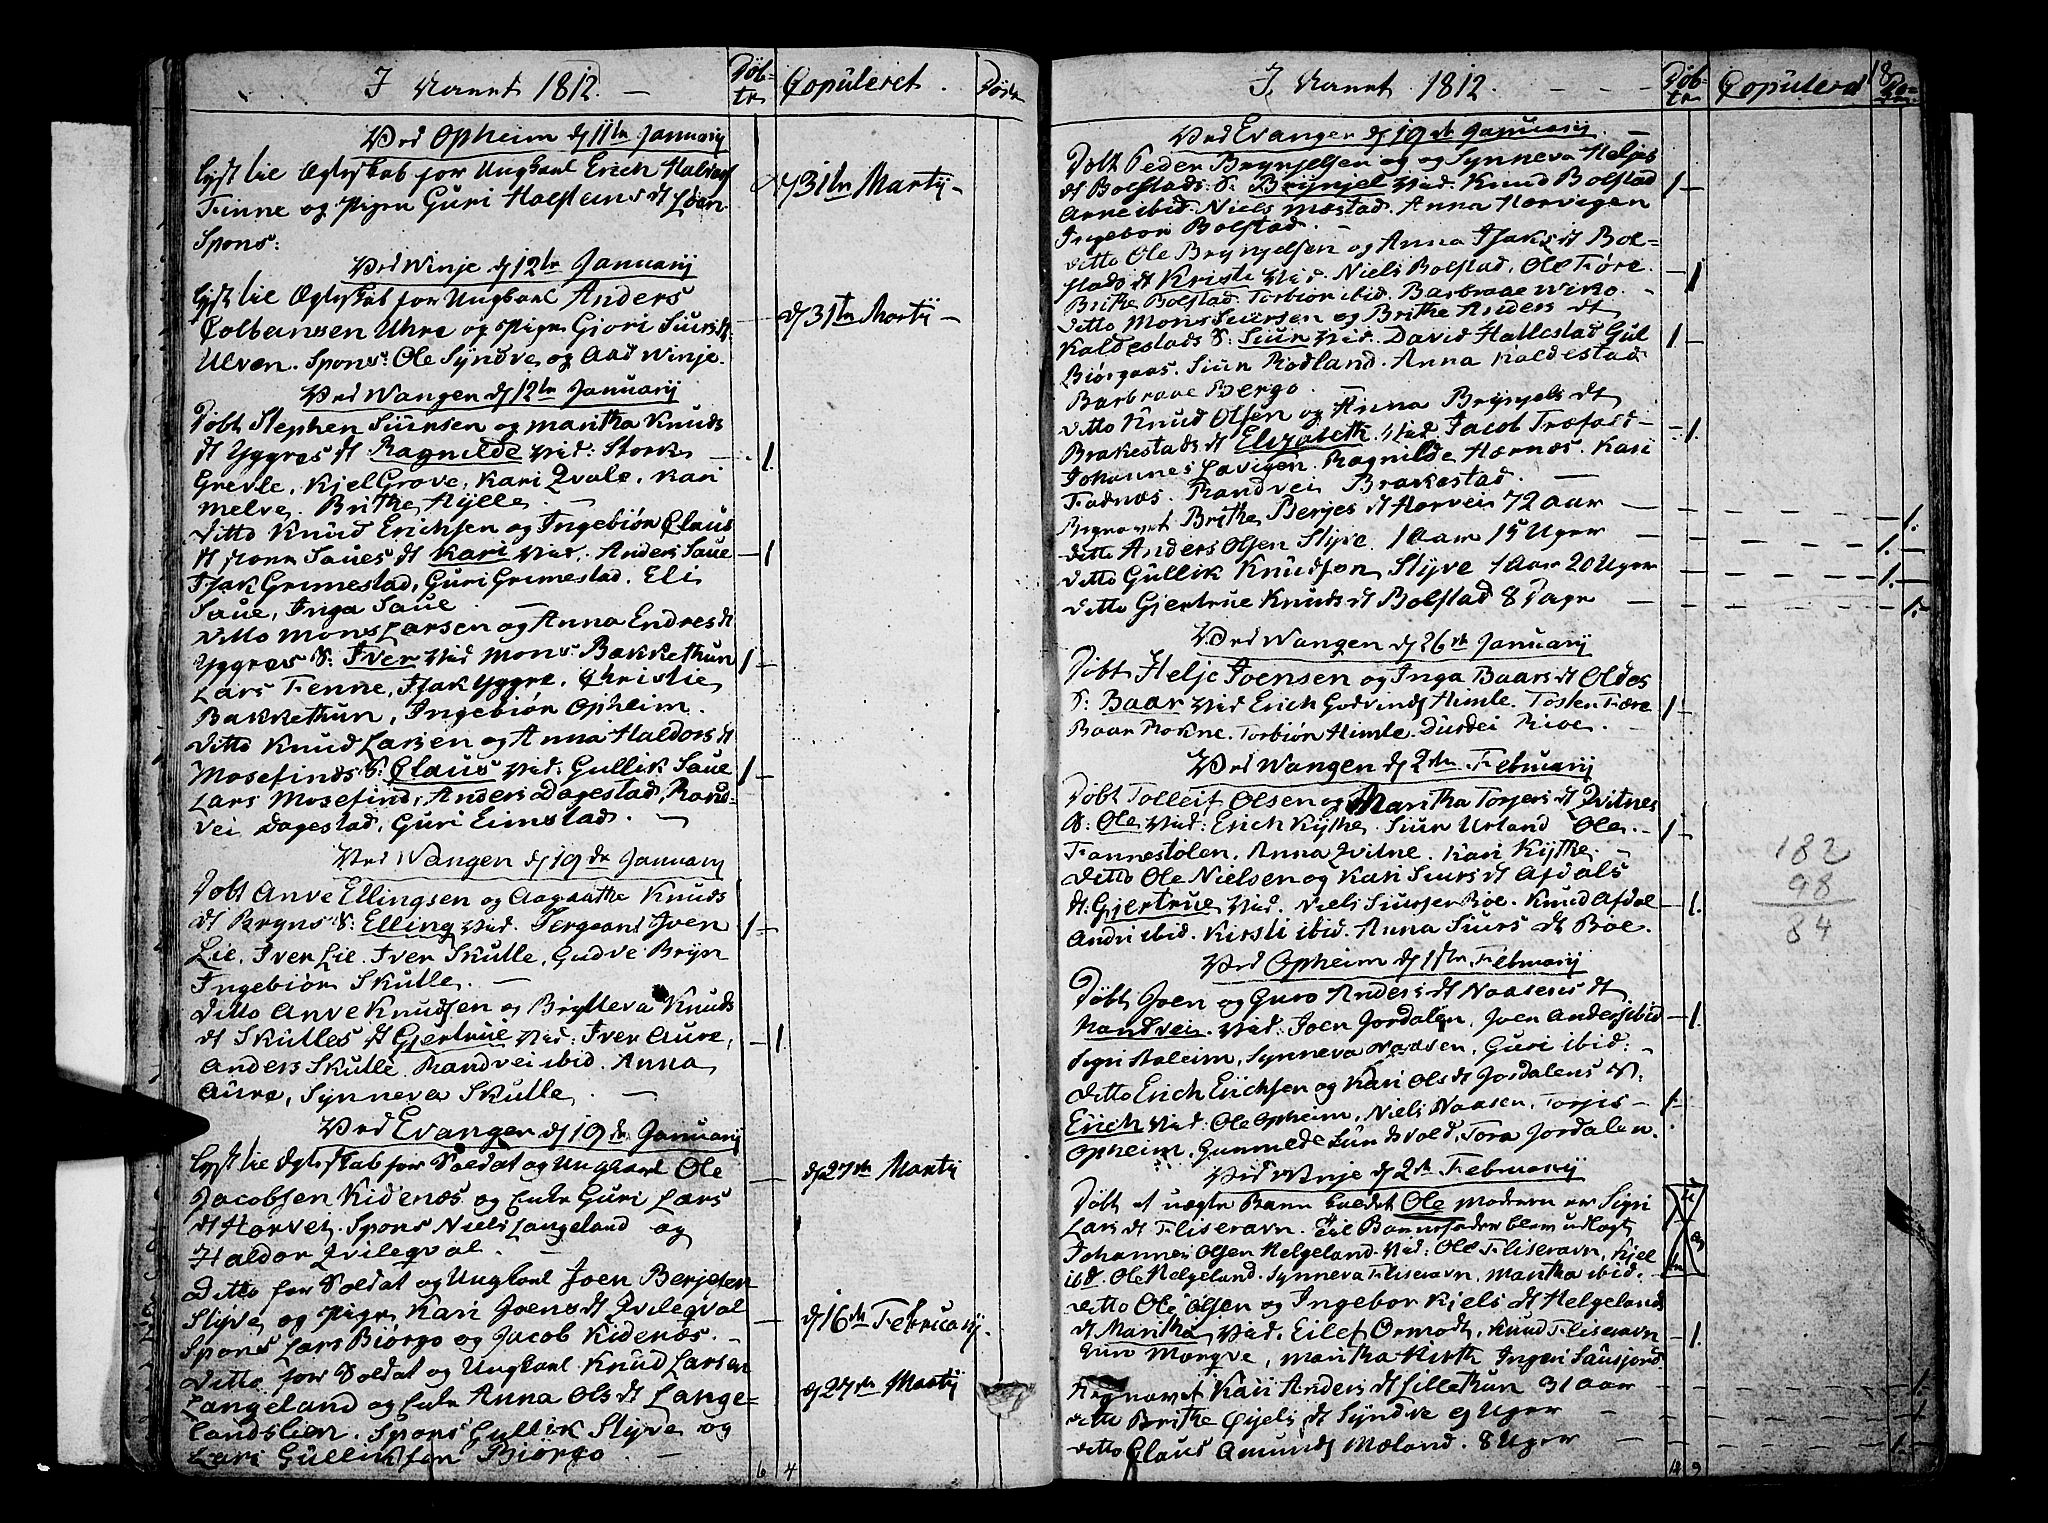 I Aaret 1812. Døbte Copuleret. Døde
Ved Opheim d 11te Januarij
lyst til Ægteskab for Ungkarl Erich Haldors
Finne og Pigen Guri Halsteins dt Løen d 31te Martij
Spons:
Ved Winje d 12te Januarij
lyst til Ægteskab for Ungkarl Anders
Colbansen Uhre og Pigen Giøri Siurs dt d 31te Martij
Ulven. Spons: Ole Syndve og Aad Winje.
Ved Wangen d 12te Januarij
Døbt Stephen Siursen og Maritha Knuds
dt Yggres dt Ragnilde Vid: Stork 1
Grevle, Kjel Grove, Kari Qvale, Kari
Melve, Brithe Hylle
Ditto Knud Erichsen og Ingebiør Claus
dt Saues dt Kari Vid. Anders Saue 1
Isak Grimestad, Guri Grimestad. Eli
Saue, Inga Saue
Ditto Mons Larsen og Anna Endres dt
Yggres S: Iver Vid Mons Bakkethun 1
Lars Fenne, Isak Yggre, Christie
Bakkethun, Ingebiør Opheim.
Ditto Knud Larsen og Anna Haldors dt
Mosefinds S: Claus Vid: Gullik Saue 1
Lars Mosefind, Anders Dagestad, Rand-
vei Dagestad, Guri Eimstad.
Ved Wangen d 19de Januarij
Døbt Anve Ellingsen og Aagaathe Knuds
dt Bryns S: Elling Vid. Sergeant Joen 1
Lie, Iver Lie. Iver Skulle, Gudve Bryn
Ingebiør Skulle.
Ditto Anve Knudsen og Brytteva Knuds
dt Skulles dt Gjertrue Vid: Iver Aure, 1
Anders Skulle Randvei ibid. Anna
Aure, Synneva Skulle
Ved Evanger d 19de Januarij
lyst til Ægteskab for Soldat og Ungkarl Ole
Jacobsen Kidenæs og Enke Guri Lars d 27de Martij
dt Horvei. Spons Niels Langeland og
Haldor Qvileqval.
Ditto for Soldat og Ungkarl Joen Berjesen
Styve og Pigen Kari Joens dt Qvileqval d 16de Februarij.
Spons Lars Biørgo og Jacob Kidenæs.
Ditto for Soldat og Ungkarl Knud Larsen
Langeland og Enke Anna Ols dt Lange- d 27de Martij
landslien. Spons Gullik Styve og
Lars Gulliksen Biørgo
6 4
I Aaret 1812. Døbte Copulerd 18 Døde
Ved Evanger d 19de Januarij
Døbt Peder Brynjelsen og Synneva Heljes
dt Bolstads S: Brynjel Vid. Knud Bolstad 1
Arne ibid. Niels Mæstad. Anna Horvigen
Ingebor Bolstad.
Ditto Ole Brynjelsen og Anna Isaks dt Bol-
stads dt Kristi Vid. Niels Bolstad, Ole Føre 1
Brithe Bolstad. Torbiør ibid. Barbraae Wiko.
Ditto Mons Seiersen og Brithe Anders dt
Kaldestads S: Siur Vid. David Hallestad Gul 1
Biørgaas. Siur Rodland. Anna Kaldestad
Barbraae Bergo.
Ditto Knud Olsen og Anna Brynjels dt
Brakestads dt Elizabeth. Vid Jacob Træfald 1.
Johannes Lavigen. Ragnilde Hærnæs. Kari
Fadnæs. Randvei Brakestad.
Begravet Brithe Berjes dt Horvei 72 Aar 1.
Ditto Anders Olsen Styve. 1 Aar 15 Uger 1.
Ditto Gullik Knudsen Styve 1 Aar 20 Uger 1.
Ditto Gjertrue Knuds dt Bolstad 8 Dage 1.
Ved Wangen d 26de Januarij
Døbt Helje Joensen og Inga Baars dt Oldes
S: Baar Vid Erich Godvinds Himle. Tosten Fære 1
Baar Rokne. Torbiør Himle. Durdei Rioe.
Ved Wangen d 2den Februarij
Døbt Tolleif Olsen og Maritha Torjers dt Qvitnes
S: Ole Vid: Erich Kythe. Siur Urland Ole. 1
Fannestølen. Anna Qvitne. Kari Kythe. 182
Ditto Ole Nielsen og Kari Siurs dt Afdals 98
dt Gjertrue Vid. Niels Siursen Boe. Knud Afdal 1.
Andri ibid. Kirsti ibid. Anna Siurs dt Boe. 84
Ved Opheim d 1ste Februarij
Døbt Joen og Guro Anders dt Naasens dt
Randvei. Vid: Joen Jordalen, Joen Anders ibid 1.
Sigri Staleim, Synneva Naasen, Guri ibid:
Ditto Erich Erichsen og Kari Ols dt Jordalens S:
Erich Vid. Ole Opheim, Niels Naasen, Torjis 1
Opheim, Gunmilde Sundsvold, Tora Jordalen.
Ved Winje d 2de Februarij
Døbt et uægte Barn kaldet Ole Moderen er Sigri
Lars dt Fliseravn. Til Barnefader blev udlagt
Johannes Olsen Helgeland. Vid: Ole Fliseravn, Kjel
ibd. Ole Helgeland. Synneva Fliseravn, Maritha ibid.
Ditto Ole Olsen og Ingebor Kjels dt Helgelands
dt Maritha Vid. Eilef Ormodt, Knud Fliseravn 1.
Mørqve, Maritha Hirth Ingeri Sausjord
Begravet Kari Anders dt Gillethun 31 Aar 1.
Ditto Brithe Gjels dt Syndve 9 Uger 1
Ditto Claus Amunds Mæland. 8 Uger 1.